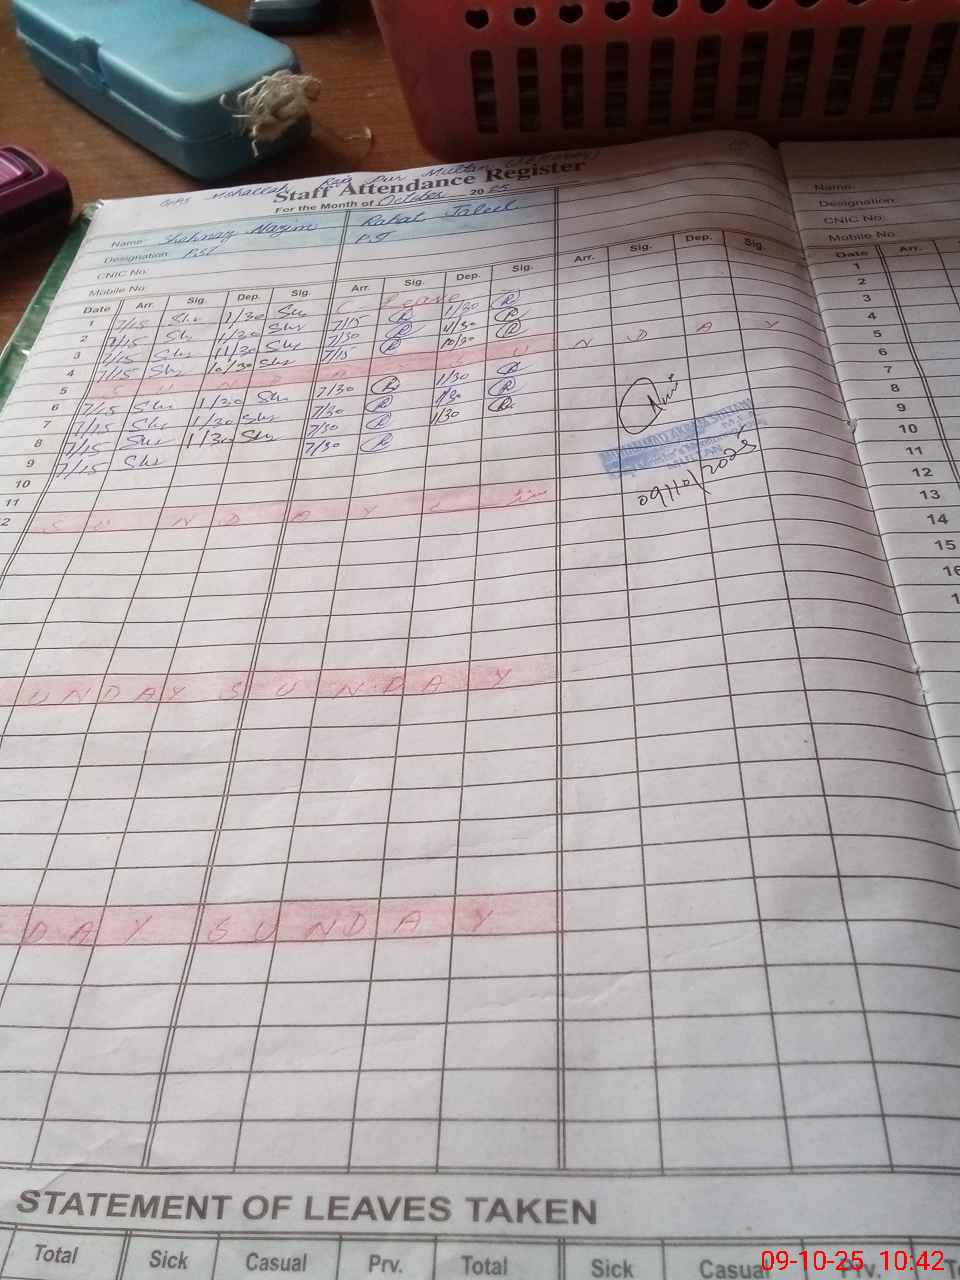 GGPS Mohallah Raja Pur Multan
Staff Attendance Register
For the Month of October 2025
Name Shahnaz Nazim Rahat Jaleel
Designation: PST PST
CNIC No:
Mobile No:
Date Arr. Sig. Dep. Sig. Arr. Sig. Dep. Sig. Arr. Sig. Dep. Sig.
1 7/15 Shr 1/30 Shr C Leave
2 7/15 Shr 1/30 Shr 7/15 R 1/30 R
3 7/15 Shr 11/30 Shr 7/30 R 11/30 R
4 7/15 Shr 10/30 Shr 7/15 R 10/30 R
5 S U N D A Y S U N D A Y
6 7/15 Shr 1/30 Shr 7/30 R 1/30 R
7 7/15 Shr 1/30 Shr 7/30 R 1/30 R
8 7/15 Shr 1/30 Shr 7/30 R 1/30 R
9 7/15 Shr 7/30 R
10
11
12 S U N D A Y S
09/10/2025
U N D A Y S U N D A Y
D A Y S U N D A Y
STATEMENT OF LEAVES TAKEN
Total Sick Casual Prv. Total Sick Casual Prv.
Name:
Designation:
CNIC No:
Mobile No
Date Arr.
1
2
3
4
5
6
7
8
9
10
11
12
13
14
15
16
09-10-25 10:42